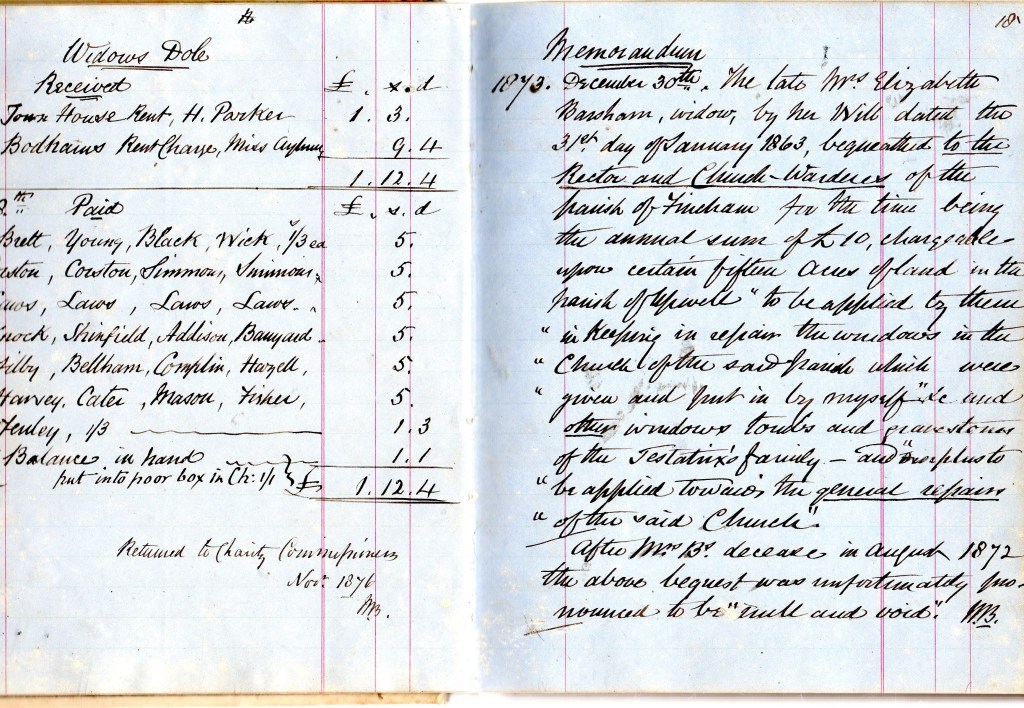 Widows Dole
Received £ . s . d
Town House Rent, H. Parker 1. 3.
Bodhams Rent Charge, Miss 9. 4
1. 12. 4
th Paid £ . s . d
Brett, Young, Black, Wick, 1/3 ea 5.
Corston, Simmons, Simmons, 5.
Laws, Laws, Laws. 5.
Shinfield, Addison, Banyard 5.
Bellham, Complin, Hazell, 5.
Harvey, Cater, Mason, Fisher, 5.
Fenley, 1/3 1. 3
Balance in hand 1. 1
put into poor box in Ch: 1/1 £ 1. 12. 4
Returned to Charity Commissioners
Novr 1876
WB.
18
Memorandum
1873. December 30th. The late Mrs Elizabeth
Barsham, widow, by her Will dated the
31st day of January 1863, bequeathed to the
Rector and Church-Wardens of the
parish of Fincham for the time being
the annual sum of £10, chargeable
upon certain fifteen Acres of land in the
parish of Upwell "to be applied by them
" in keeping in repair the windows in the
" Church of the said parish which were
" given and put in by myself" &c and
other windows tombs and gravestones
of the Testatrix's family. – And "overplus to
" be applied towards the general repairs
" of the said Church".
After Mrs Bs. decease in August 1872
the above bequest was unfortunately pro-
nounced to be "null and void". WB.